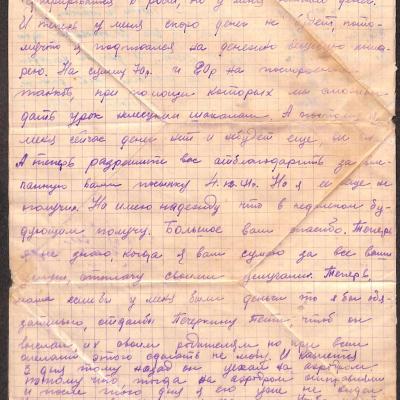 у меня
И теперь у меня скоро денег не будет, пото-
мучто я подписался на денежно вещевую лоте-
рею. На сумму 70р. и 20р на построение
танков, при помощи которых мы сможем
дать урок немецким шакалам. А поэтому у
меня сейчас денег нет и небудет еще
А теперь разрешите вас отблагодарить за
вами посылку 4.XII.41г. Но я её еще не
получил. Но имею надежду что в недалеком бу-
дующем получу. Большое вам спасибо. Теперь
я не знаю, когда я вам сумею за все ваши
отплачу своими Теперь
мама если бы у меня были деньги то я бы обя-
зательно, отдал бы Печеркину Пете чтоб он
выслал их своим родителям но при всем
желании этого сделать не могу. И кажется
3 дня тому назад он уехал на аэродром
потому что, тогда на аэродром отправляли
и после того дня я его уже не видел